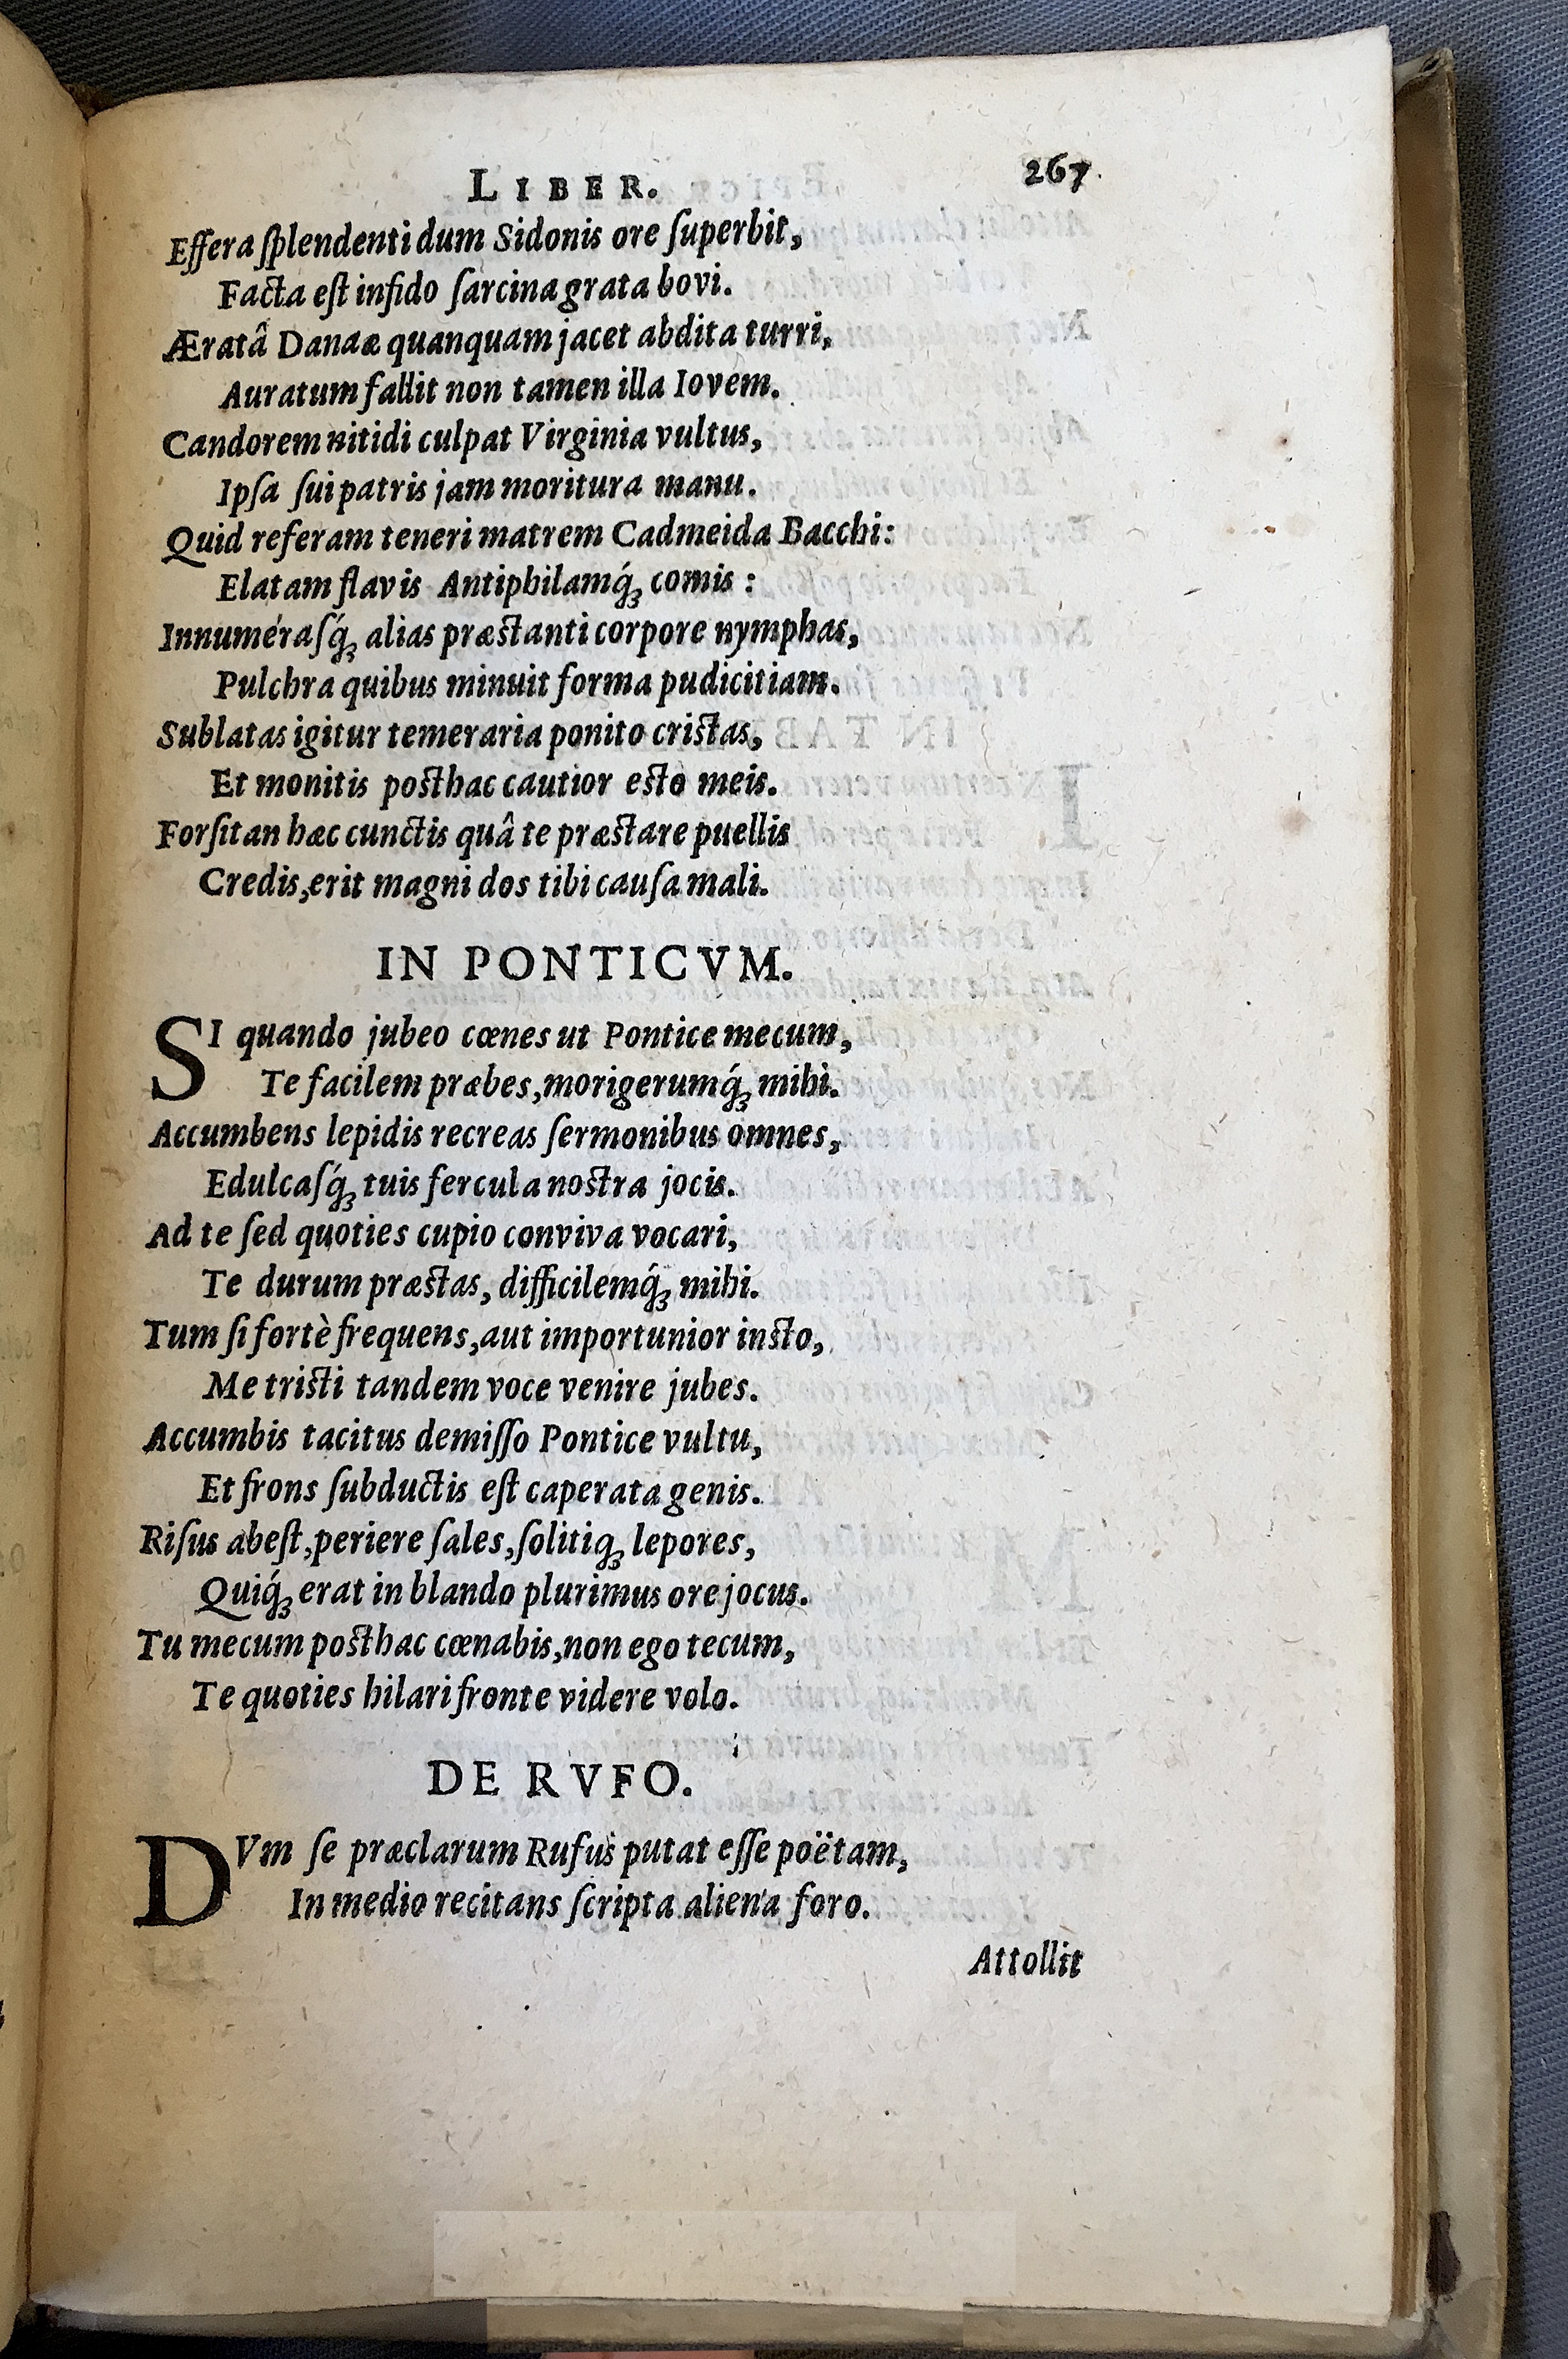 LIBER. 267.
Effera ſplendenti dum Sidonis ore ſuperbit,
Facta eſt infido ſarcina grata bovi.
Æratâ Danaæ quanquam jacet abdita turri,
Auratum fallit non tamen illa Iovem.
Candorem nitidi culpat Virginia vultus,
Ipſa ſui patris jam moritura manu.
Quid referam teneri matrem Cadmeida Bacchi:
Elatam flavis Antiphilamq́ꝫ comis :
Innumeraſq́ꝫ alias præſtanti corpore nymphas,
Pulchra quibus minuit forma pudicitiam.
Sublatas igitur temeraria ponito criſtas,
Et monitis poſthac cautior eſto meis.
Forſitan hæc cunctis quâ te præſtare puellis
Credis, erit magni dos tibi cauſa mali.
IN PONTICVM.
SI quando jubeo cœnes ut Pontice mecum,
Te facilem præbes, morigerumq́ꝫ mihi.
Accumbens lepidis recreas ſermonibus omnes,
Edulcaſq́ꝫ tuis fercula noſtra jocis.
Ad te ſed quoties cupio conviva vocari,
Te durum præſtas, difficilemq́ꝫ mihi.
Tum ſi fortè frequens, aut importunior inſto,
Me triſti tandem voce venire jubes.
Accumbis tacitus demiſſo Pontice vultu,
Et frons ſubductis eſt caperata genis.
Riſus abeſt, periere ſales, ſolitiqꝫ lepores,
Quiq́ꝫ erat in blando plurimus ore jocus.
Tu mecum poſthac cœnabis, non ego tecum,
Te quoties hilari fronte videre volo.
DE RVFO.
DVm ſe præclarum Rufus putat eſſe poëtam,
In medio recitans ſcripta aliena foro.
Attollit